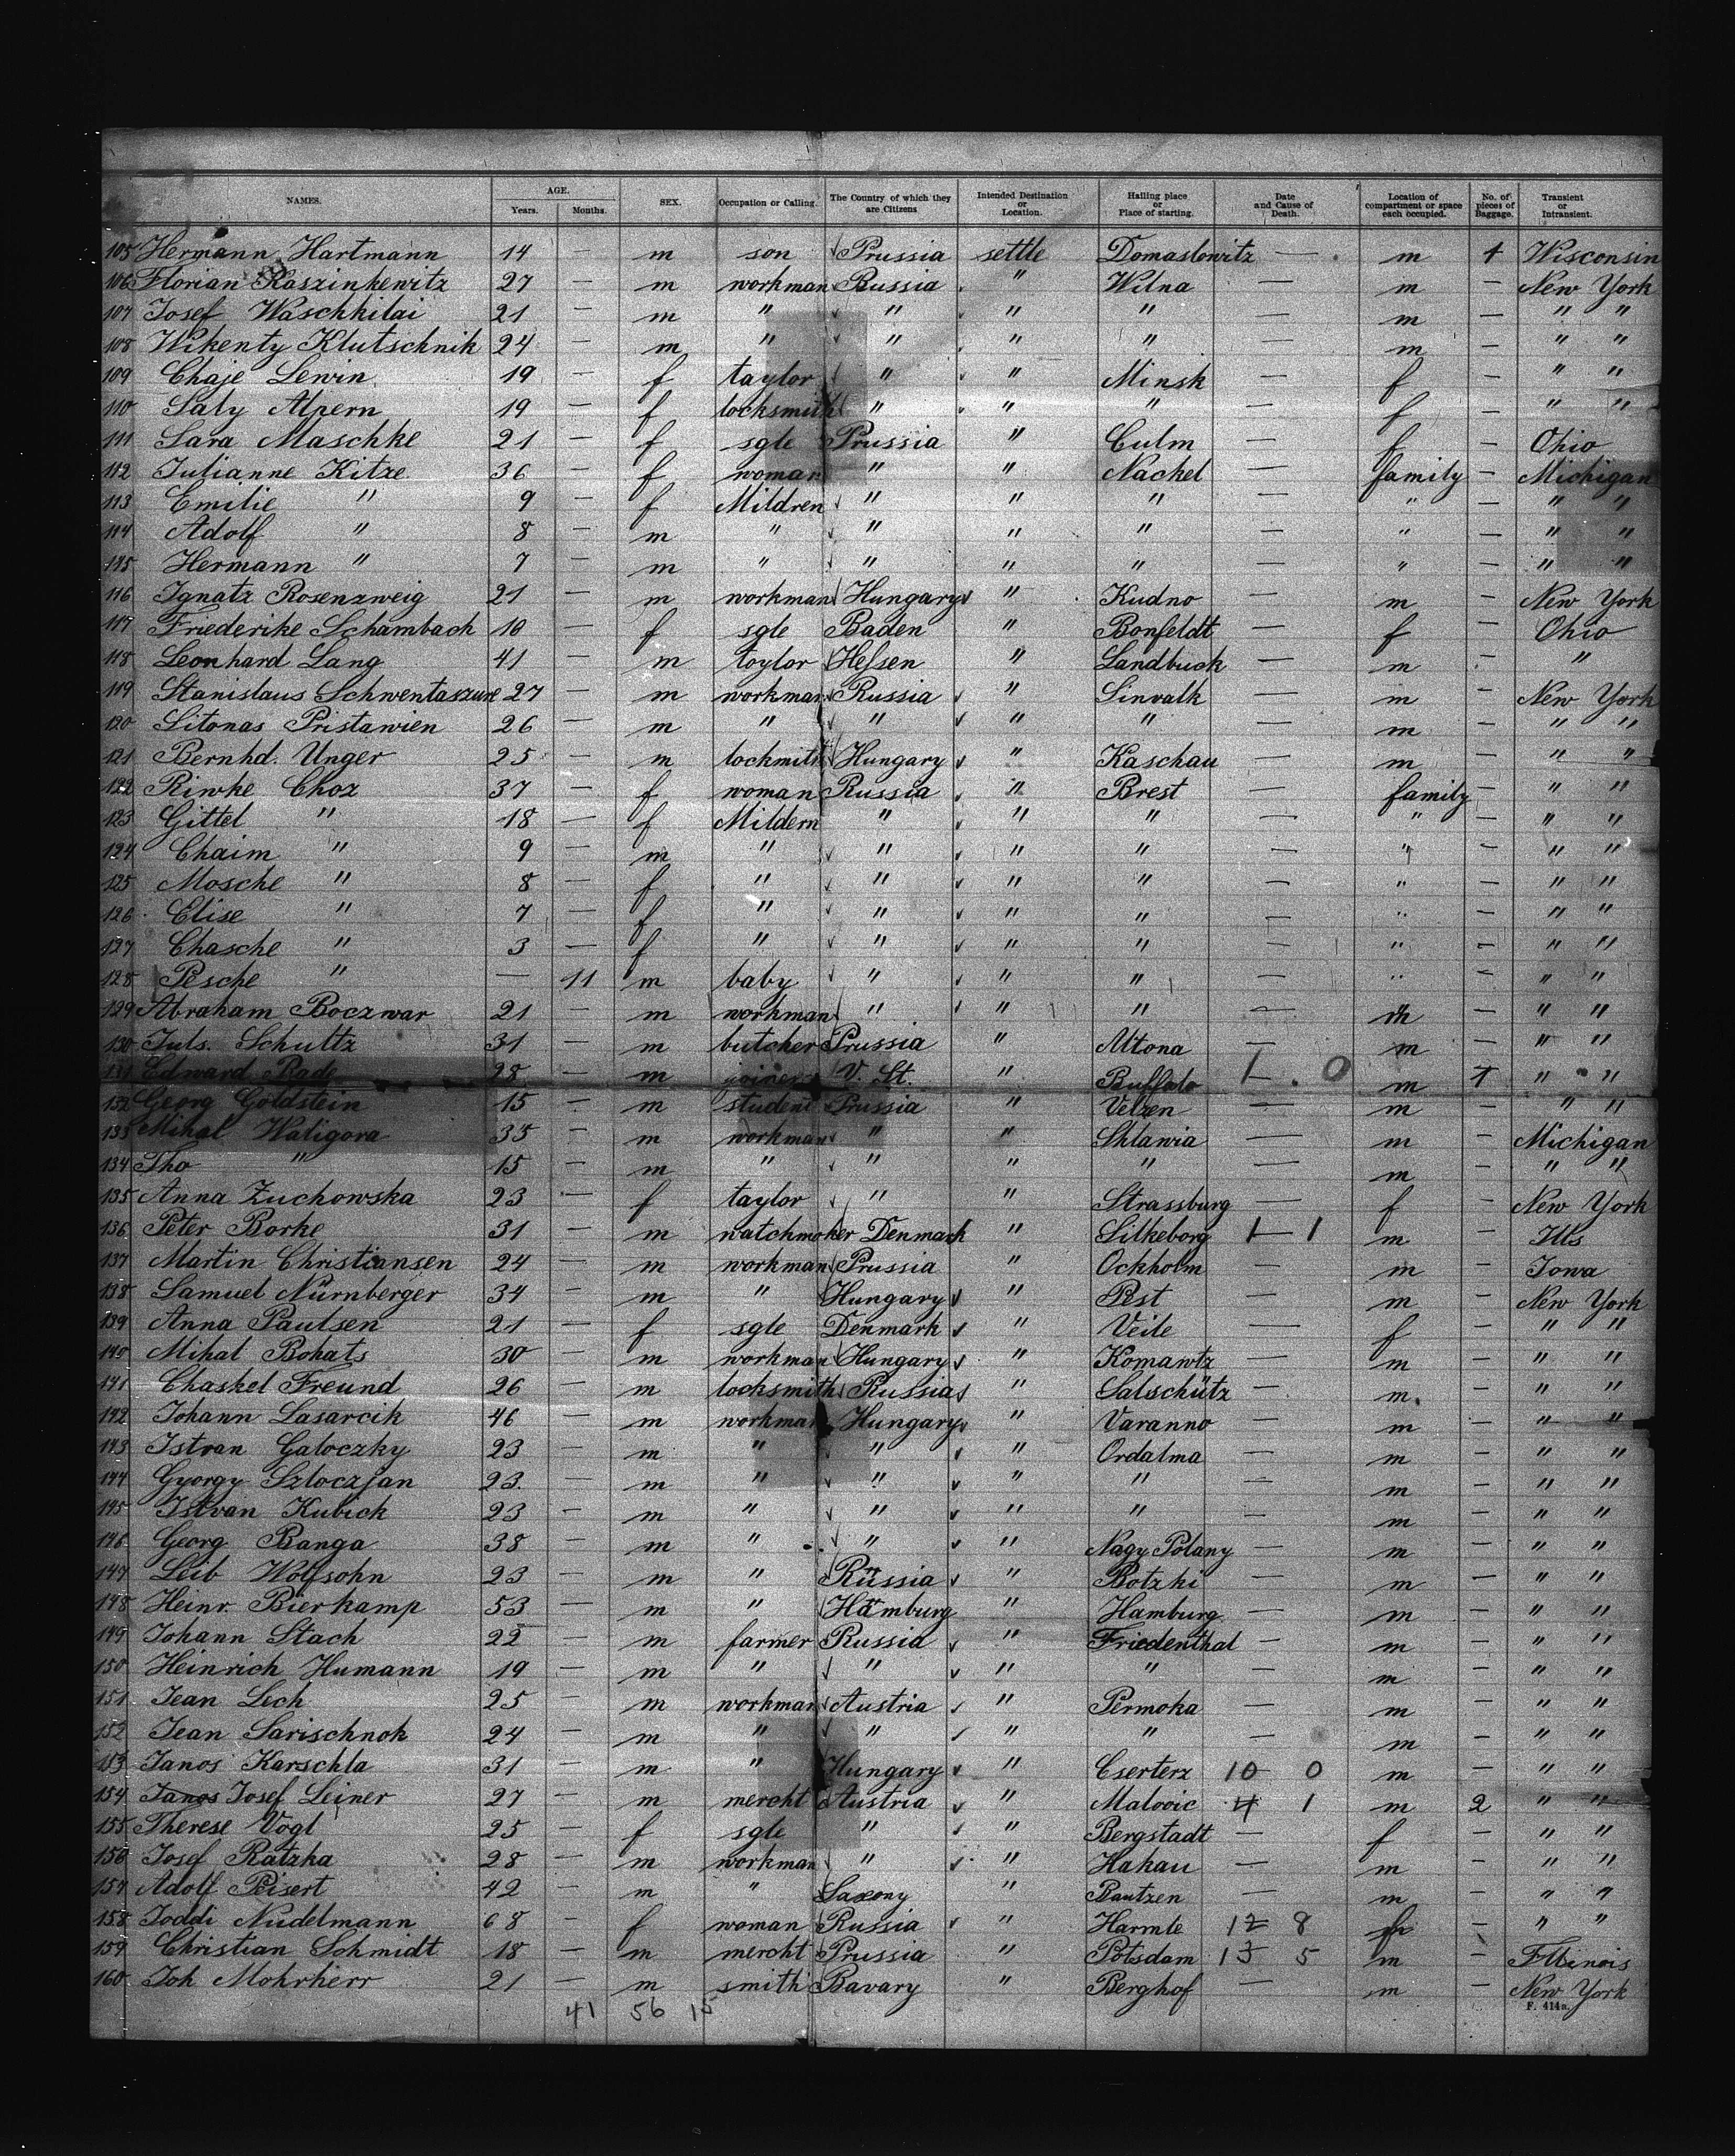 NAMES. AGE. Years. Months. SEX. Occupation or Calling. The Country of which they are Citizens Intended Destination or Location. Hailing place or Place of starting. Date and Cause of Death. Location of compartment or space each occupied. No. of pieces of Baggage. Transient or Intransient.
105 Hermann Hartmann 14 m son Prussia settle Domaslowitz — m 1 Wisconsin
106 Florian Raszinkewitz 27 — m workman Russia " Wilna — m — New York
107 Josef Waschkilai 21 — m " " " " — m — " "
108 Wikenty Klutschnik 24 — m " " " " — m — " "
109 Chaje Lewin 19 — f taylor " " Minsk — f — " "
110 Saly Alpern 19 — f locksmith " " " — f — " "
111 Sara Maschke 21 — f sgle Prussia " Culm — f — Ohio
112 Julianne Kitze 36 — f woman " " Nackel — family — Michigan
113 Emilie " 9 — f Mildren " " " — " — " "
114 Adolf " 8 — m " " " " — " — " "
115 Hermann " 7 — m " " " " — " — " "
116 Ignatz Rosenzweig 21 — m workman Hungary " Kudno — m — New York
117 Friederike Schambach 10 — f sgle Baden " Bonfeldt — f — Ohio
118 Leonhard Lang 41 — m toylor Hessen " Landbuck — m - "
119 Stanislaus Schwentaszune 27 — m workman Russia " Sinvalk — m — New York
120 Litonas Pristawien 26 — m " " " " — m — " "
121 Bernhd. Unger 25 — m lockmith Hungary " Kaschau — m — " "
122 Riwke Choz 37 — f woman Russia " Brest — family — " "
123 Gittel " 18 — f Mildern " " " — " — " "
124 Chaim " 9 — m " " " " — " — " "
125 Mosche " 8 — f " " " " — " — " "
126 Elise " 7 — f " " " " — " — " "
127 Chasche " 3 — f " " " " — " — " "
128 Pesche " — 11 m baby " " " — " — " "
129 Abraham Boczwar 21 — m workman " " " — m — " "
130 Juls. Schultz 31 — m butcher Prussia " Altona — m — " "
131 Edward Rade 28 — m joiner V. St. " Buffalo 1 . 0 m 1 " "
132 Georg Goldstein 15 — m student Prussia " Velzen — m — " "
133 Mihal Waligora 35 — m workman " " Shlawia — m — Michigan
134 Tho " 15 — m " " " " — m — " "
135 Anna Zuchowska 23 — f taylor " " Strassburg — f — New York
136 Peter Borke 31 — m watchmoker Denmark " Silkeborg 1 — 1 m — Ills
137 Martin Christiansen 24 — m workman Prussia " Ockholm — m — Iowa
138 Samuel Nürnberger 34 — m " Hungary " Pest — m — New York
139 Anna Paulsen 21 — f sgle Denmark " Veile — f — " "
140 Mihal Bohats 30 — m workman Hungary " Komawtz — m — " "
141 Chaskel Freund 26 — m locksmith Russia " Salschütz — m. — " "
142 Johann Lasarcik 46 — m workman Hungary " Varanno — m — " "
143 Istvan Galoczky 23 — m " " " Ordalma — m — " "
144 Gyorgy Szloczjan 23. — m " " " " — m — " "
145 Istvan Kubick 23 — m " " " " — m — " "
146 Georg Banga 38 — m " " " Nagy Polany — m — " "
147 Leib Wolfsohn 23 — m " Russia " Botzki — m — " "
148 Heinr. Bierkamp 53 — m " Hamburg " Hamburg — m — " "
149 Johann Stach 22 — m farmer Russia " Friedenthal — m — " "
150 Heinrich Humann 19 — m " " " " — m — " "
151 Jean Lech 25 — m workman Austria " Permoka — m — " "
152 Jean Sarischnok 24 — m " " " " — m — " "
153 Janos Karschla 31 — m " Hungary " Eserterz 10 0 m — " "
154 Janos Josef Leiner 27 — m mercht Austria " Malovic 4 1 m 2 " "
155 Therese Vogl 25 — f sgle " " Bergstadt — f — " "
156 Josef Ratzka 28 — m workman " " Hakau — m — " "
157 Adolf Peisert 42 — m " Saxony " Bautzen — m — " "
158 Joddi Nudelmann 68 — f woman Russia " Harmle 12 8 f — " "
159 Christian Schmidt 18 — m mercht Prussia " Potsdam 13 5 m — Illinois
160 Joh Mohrherr 21 — m smith Bavary " Berghof — m — New York
41 56 15
F. 414a.